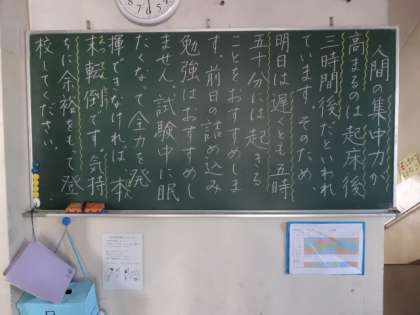 人間の集中力が
高まるのは起床後
三時間後だといわれ
ています。そのため、
明日は遅くとも五時
五十分には起きる
ことをおすすめしま
す。前日の詰め込み
勉強はおすすめし
ません。試験中に眠
たくなって全力を発
揮できなければ本
末転倒です。気持
ちに余裕をもって登
校してください。